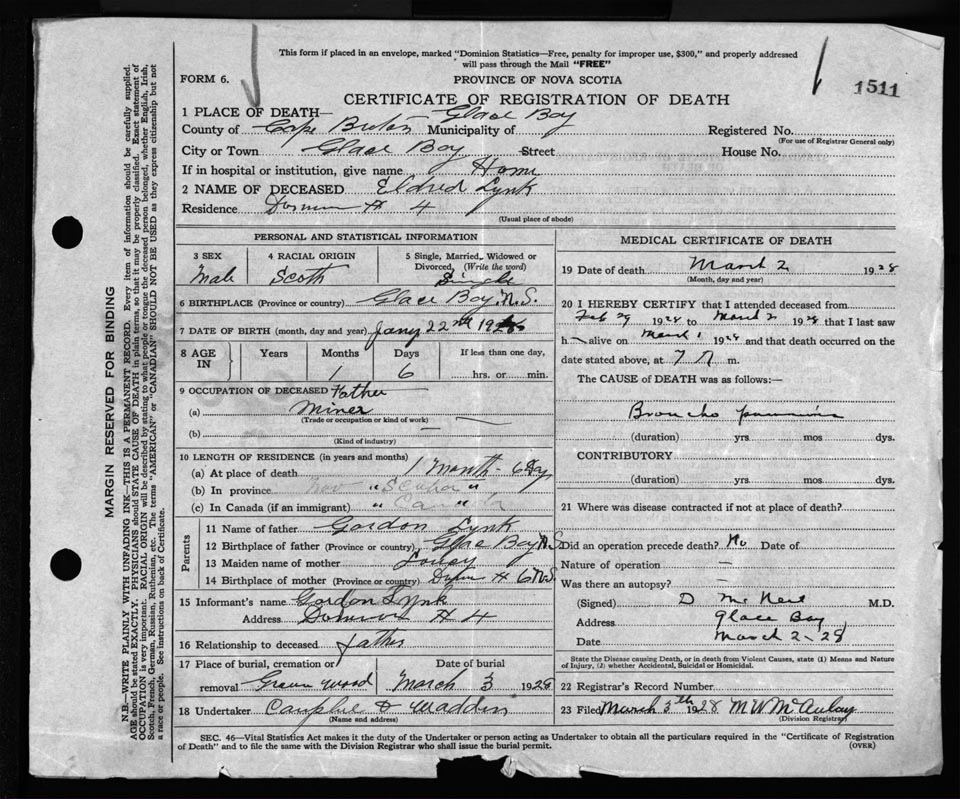 This form if placed in an envelope, marked "Dominion Statistics—Free, penalty for improper use, $300," and properly addressed
will pass through the Mail "FREE"
FORM 6.
PROVINCE OF NOVA SCOTIA
1511
CERTIFICATE OF REGISTRATION OF DEATH
1 PLACE OF DEATH—
County of Cape Breton Municipality of Glace Bay Registered No.
(For use of Registrar General only)
City or Town Glace Bay Street House No.
If in hospital or institution, give name Home
2 NAME OF DECEASED Eldred Lynk
Residence # 4
(Usual place of abode)
PERSONAL AND STATISTICAL INFORMATION
3 SEX Male
4 RACIAL ORIGIN Scotch
5 Single, Married, Widowed or Divorced, (Write the word) Single
6 BIRTHPLACE (Province or country) Glace Bay N.S.
7 DATE OF BIRTH (month, day and year) Jany 22nd 1928
8 AGE IN Years Months 1 Days 6 If less than one day, hrs. or min.
9 OCCUPATION OF DECEASED Father
(a) Miner
(Trade or occupation or kind of work)
(b)
(Kind of industry)
10 LENGTH OF RESIDENCE (in years and months)
(a) At place of death 1 Month - 6 Day
(b) In province " "
(c) In Canada (if an immigrant) " "
Parents
11 Name of father Gordon Lynk
12 Birthplace of father (Province or country) Glace Bay N.S
13 Maiden name of mother
14 Birthplace of mother (Province or country) # 6 N.S.
15 Informant's name Gordon Lynk
Address # 4
16 Relationship to deceased father
17 Place of burial, cremation or removal Greenwood
Date of burial March 3 1928
18 Undertaker
(Name and address)
MEDICAL CERTIFICATE OF DEATH
19 Date of death March 2 1928
(Month, day and year)
20 I HEREBY CERTIFY that I attended deceased from
Feb 29 1928 to March 2 1928 that I last saw
h alive on March 1 1928 and that death occurred on the
date stated above, at 7 m.
The CAUSE of DEATH was as follows:—
Broncho pneumonia
(duration) yrs. mos. dys.
CONTRIBUTORY
(duration) yrs. mos. dys.
21 Where was disease contracted if not at place of death?
Did an operation precede death? No Date of
Nature of operation —
Was there an autopsy? —
(Signed) D McNeil M.D.
Address Glace Bay
Date March 2-28
State the Disease causing Death, or in death from Violent Causes, state (1) Means and Nature
of Injury, (2) whether Accidental, Suicidal or Homicidal.
22 Registrar's Record Number
23 Filed March 3th 1928 M W McAulay
(Division Registrar)
SEC. 46—Vital Statistics Act makes it the duty of the Undertaker or person acting as Undertaker to obtain all the particulars required in the "Certificate of Registration
of Death" and to file the same with the Division Registrar who shall issue the burial permit.
(OVER)
MARGIN RESERVED FOR BINDING
N.B.—WRITE PLAINLY WITH UNFADING INK—THIS IS A PERMANENT RECORD. Every item of information should be carefully supplied.
AGE should be stated EXACTLY. PHYSICIANS should STATE CAUSE OF DEATH in plain terms, so that it may be properly classified. Exact statement of
OCCUPATION is very important. RACIAL ORIGIN will be described by stating to what people or tongue the deceased person belonged, whether English, Irish,
Scotch, French, German, Russian, Ruthenian, etc. The terms "AMERICAN" or "CANADIAN" SHOULD NOT BE USED as they express citizenship but not
a race or people. See instructions on back of Certificate.